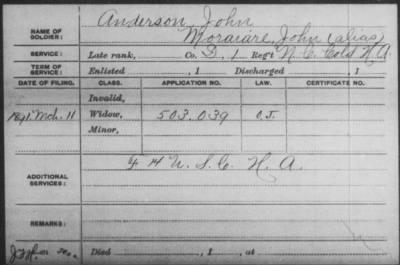 Anderson, John
NAME OF SOLDIER: Moraiare, John (alias)
SERVICE: Late rank, Co. D, 1 Reg't N.C. Cold H.A.
TERM OF SERVICE: Enlisted , 1 Discharged , 1
DATE OF FILING. CLASS. APPLICATION NO. LAW. CERTIFICATE NO.
Invalid,
Mch. 11 Widow, 503.039 O.J.
Minor,
ADDITIONAL SERVICES: 14 U.S.C. H.A.
REMARKS:
Died , 1 , at